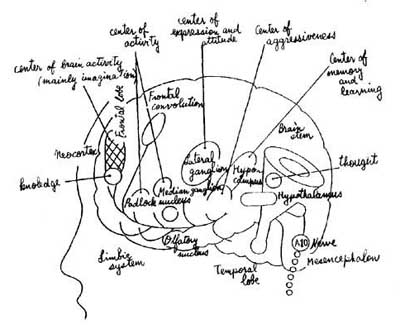 center of
activity
center of
expression and
attitude
center of
aggressiveness
center of brain activity
(mainly imagination)
center of
memory
and
learning
Frontal lobe
Frontal
convolution
Neocortex
Lateral
ganglion
Brain
stem
thought
knoledge
Median ganglion
Hypocampus
Padlock nucleus
Hypothalamus
Limbic
system
Olfatory
nucleus
Temporal
lobe
A10 Nerve
Mesencephalon